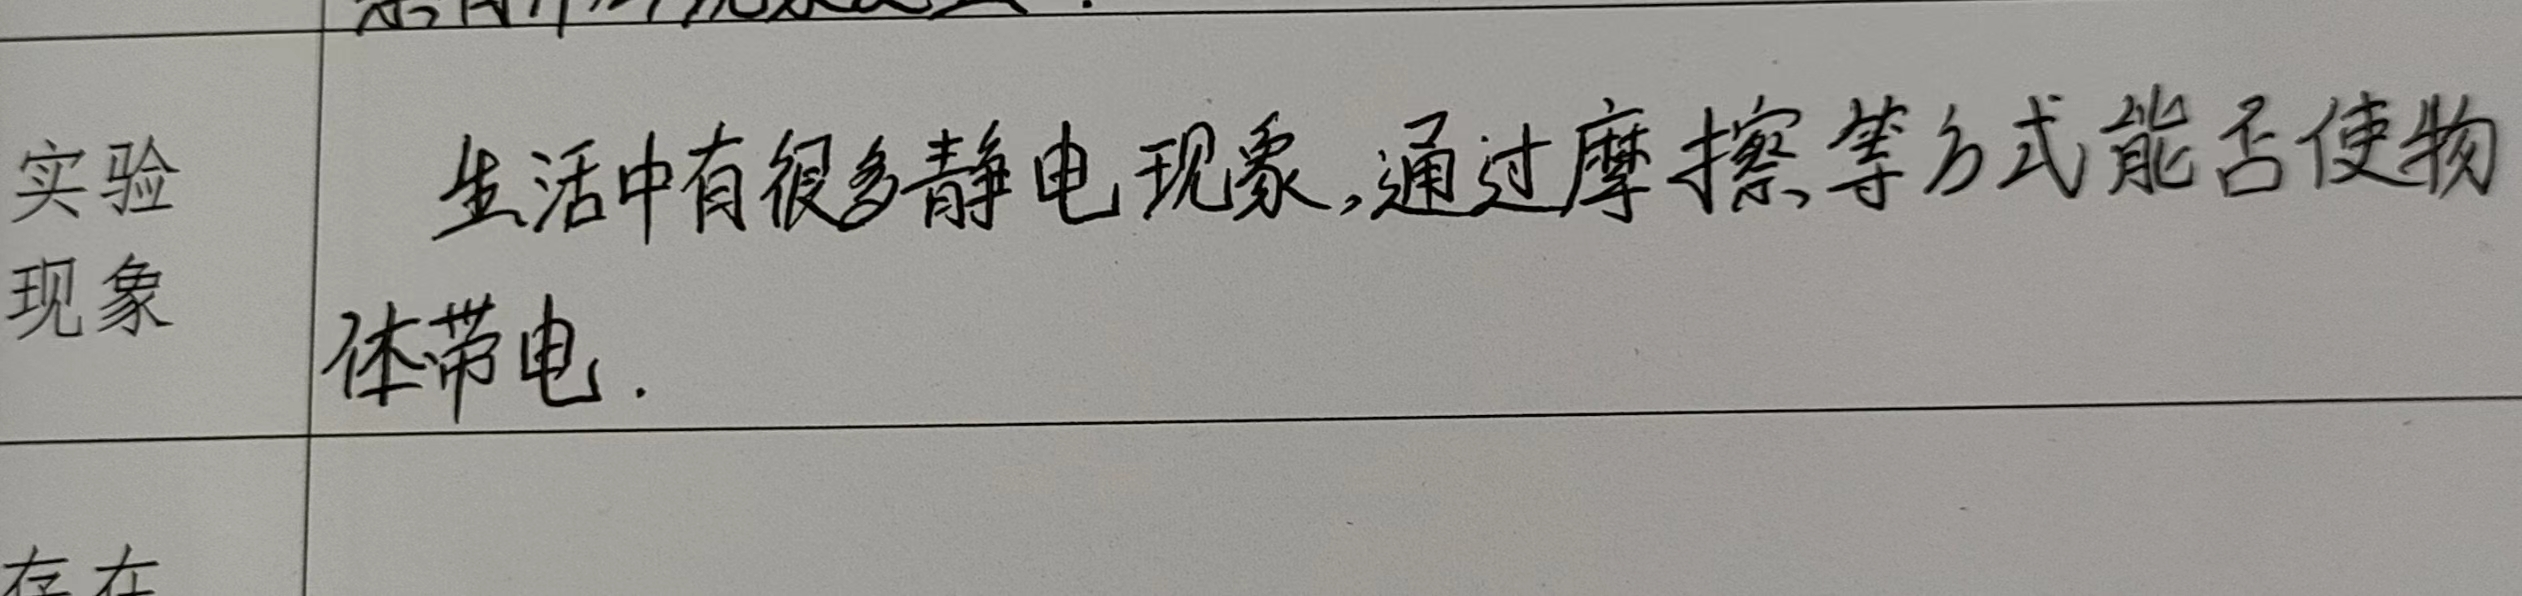 实验
现象
生活中有很多静电现象,通过摩擦等方式能否使物
体带电.
存在